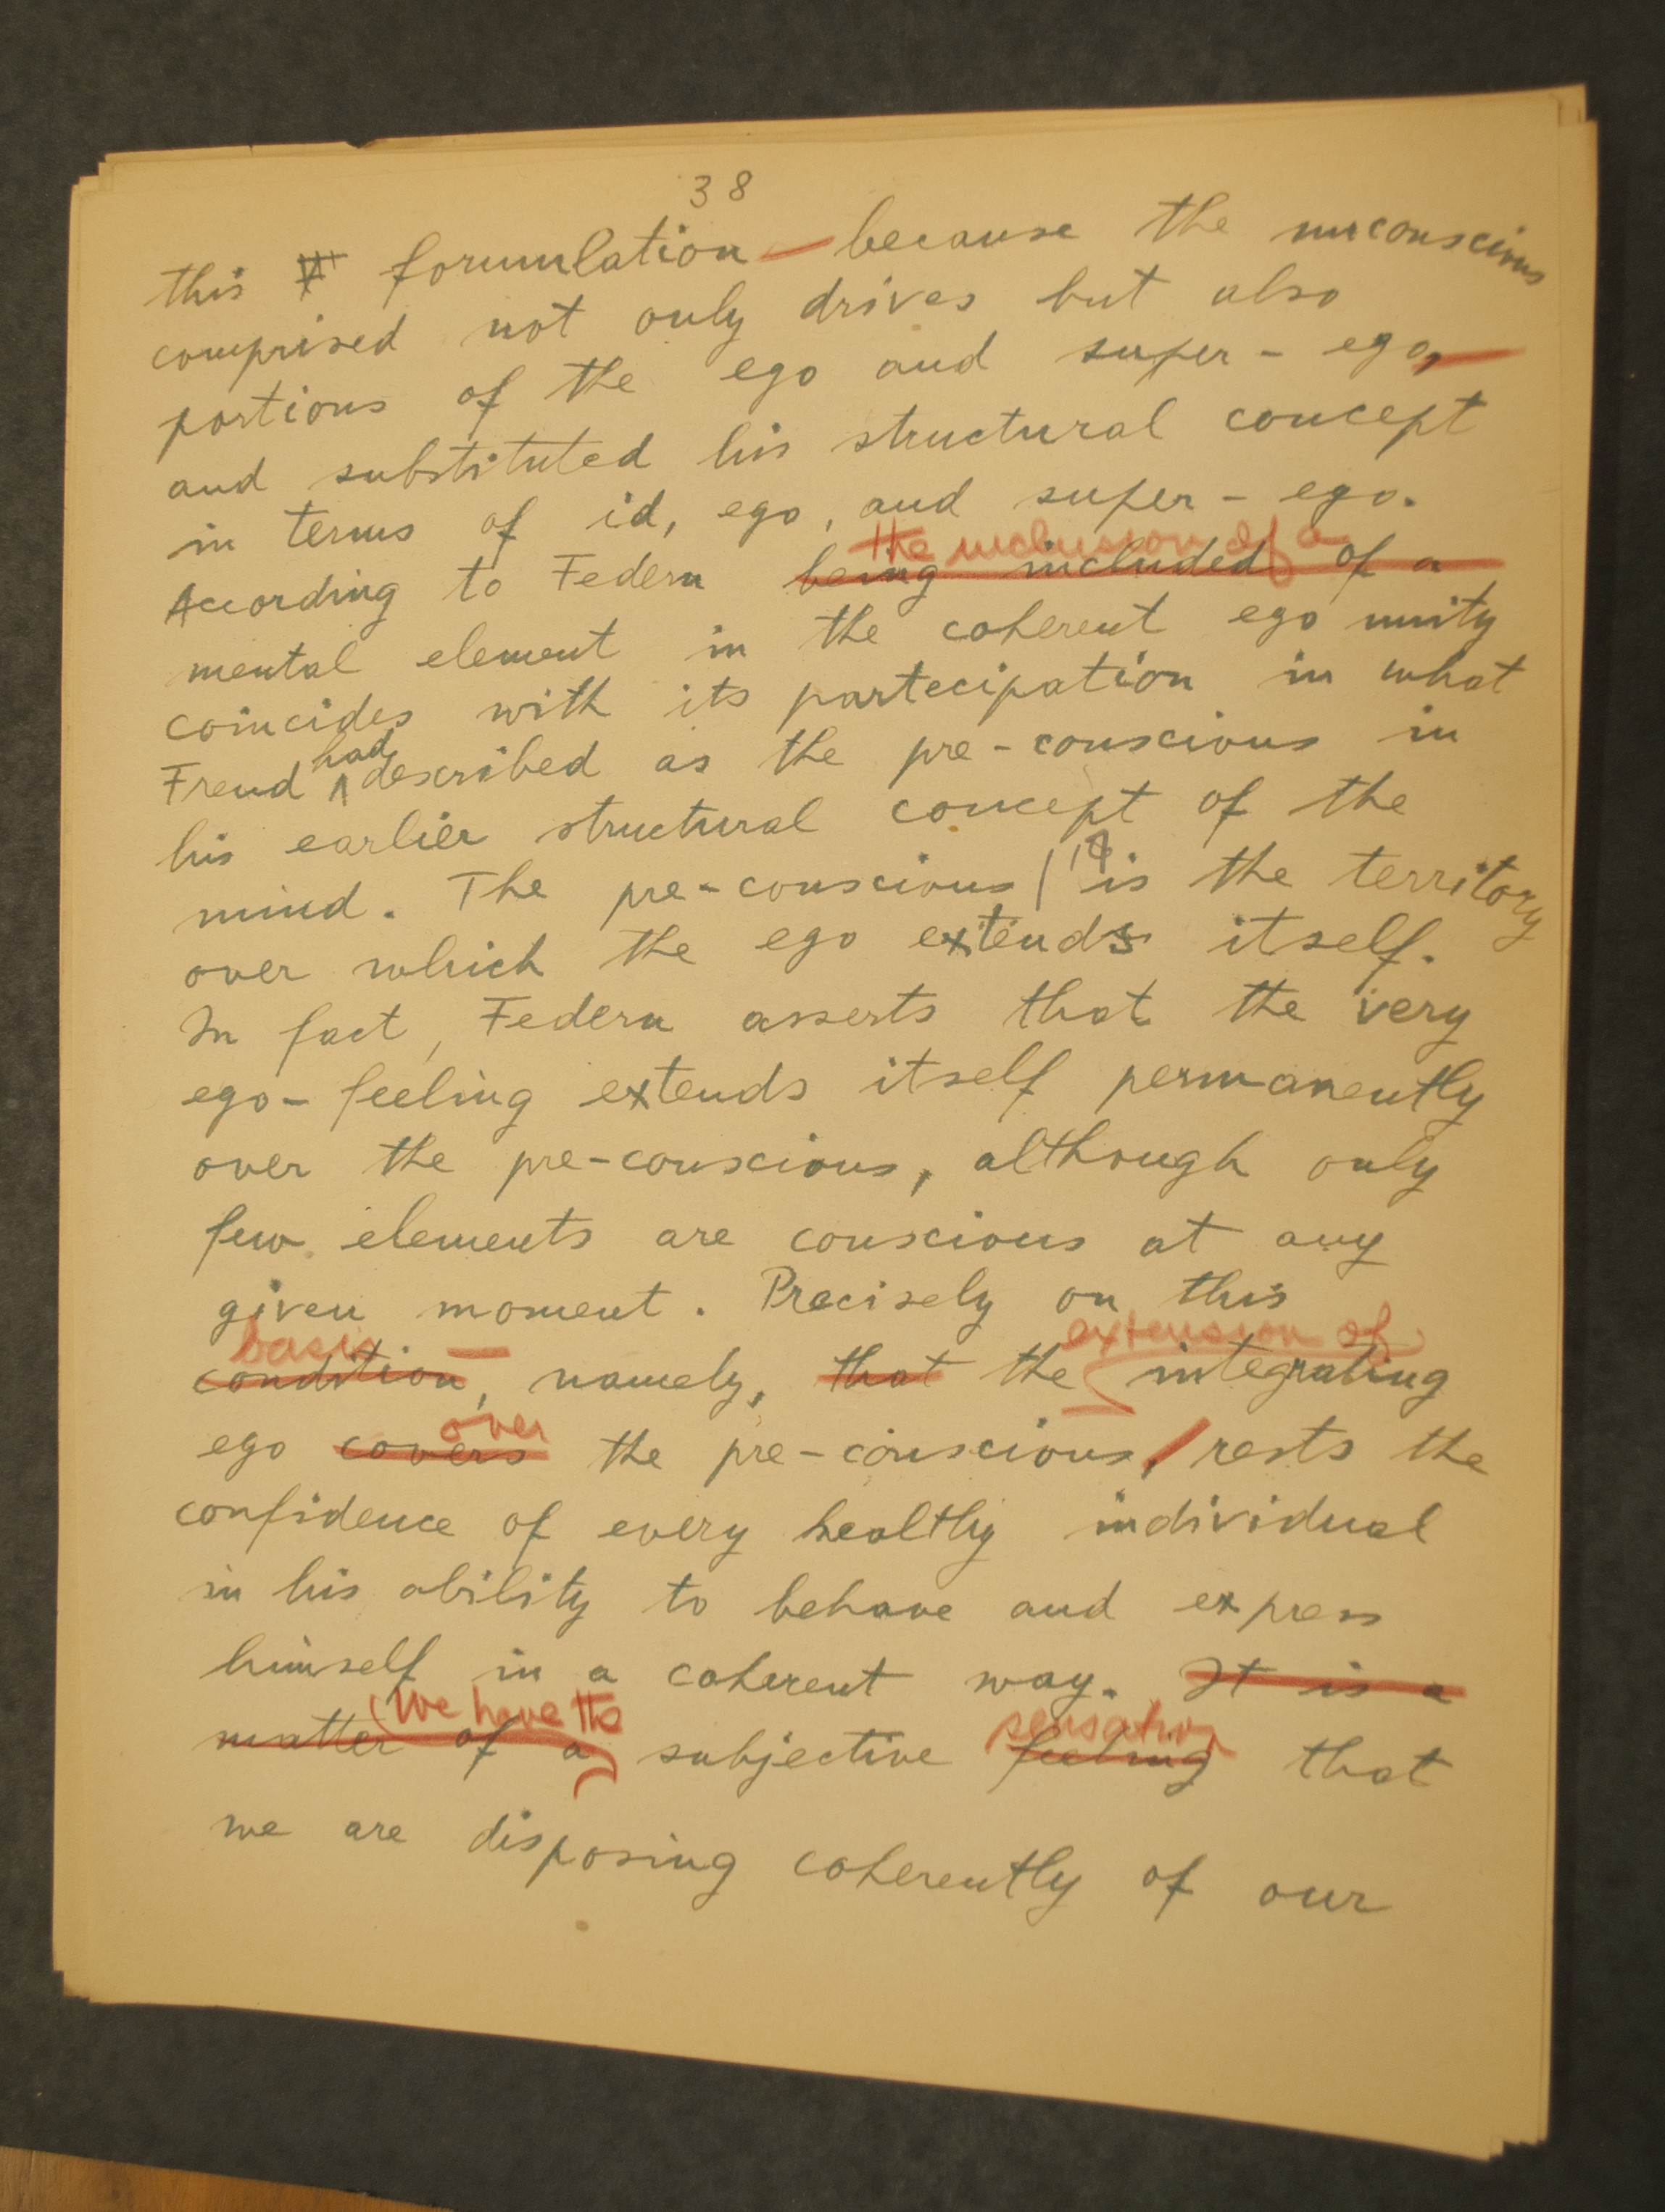 38
this formulation — because the unconscious
comprised not only drives but also
portions of the ego and super-ego, —
and substituted his structural concept
in terms of id, ego, and super-ego.
the inclusion of a
According to Federn being included of a
mental element in the coherent ego unity
coincides with its partecipation in what
had
Freud ^ described as the pre-conscious in
his earlier structural concept of the
mind. The pre-conscious is the territory
over which the ego extends itself.
In fact, Federn asserts that the very
ego-feeling extends itself permanently
over the pre-conscious, although only
few elements are conscious at any
given moment. Precisely on this
basis — extension of
condition, namely, that the integrating
over
ego covers the pre-conscious, rests the
confidence of every healthy individual
in his ability to behave and express
himself in a coherent way. It is a
We have the sensation
matter of a subjective feeling that
we are disposing coherently of our